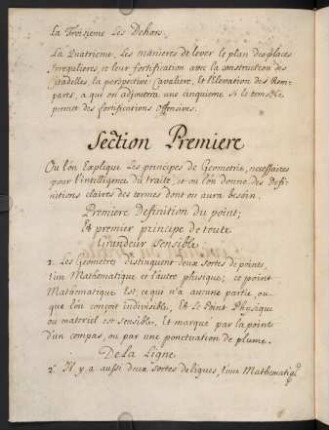 La Troisieme Les Dehors.
La Quatrieme, Les manieres de lever le plan des places
Irregulieres, et leur fortification avec la construction des
Citadelles, la perspective Cavaliere, et l'Elevation des Rem-
parts, a qui on adjoutera une cinquieme si le tems le
permet des fortifications offensives.
Section Premiere
Ou l'on Explique Les principes de Geometrie, necessaires
pour l'intelligence du traité, et ou l'on donne des Defi-
nitions claires des termes dont on aura besoin.
Premiere Definition du point;
Et premier principe de toute
Grandeur Sensible
1. Les Geometre distinguent deux sortes de points,
l'un Mathematique et l'autre physique; ce point
Mathematique Est, ce qui n'a aucune partie, ou-
que l'on conçoit indivisible, Et le Point Physique
ou materiel est sensible, Et marqué par la pointe
d'un compas, ou par une ponctuation de plume.
De la Ligne
2. Il y a aussi deux sortes de lignes, l'une Mathematiq